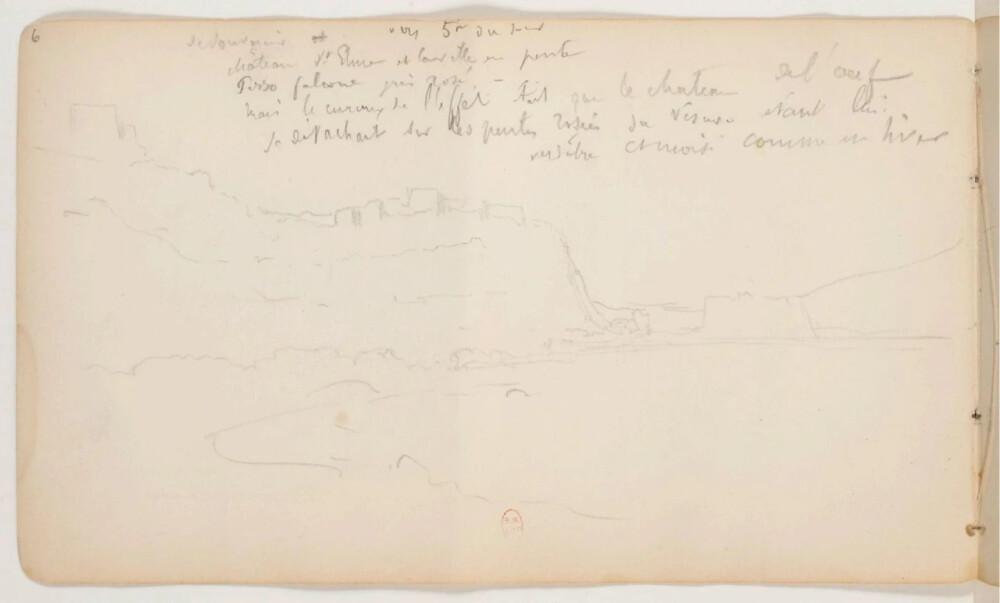 6
vers 5h du soir
château St Elme et la ville en pente
Pizzo falcone gris rosé –
mais le curieux de l'effet était que le chateau de l'oeuf
se détachait sur les pentes rosées du Vesuve étant lui
verdâtre et moisi comme en hiver